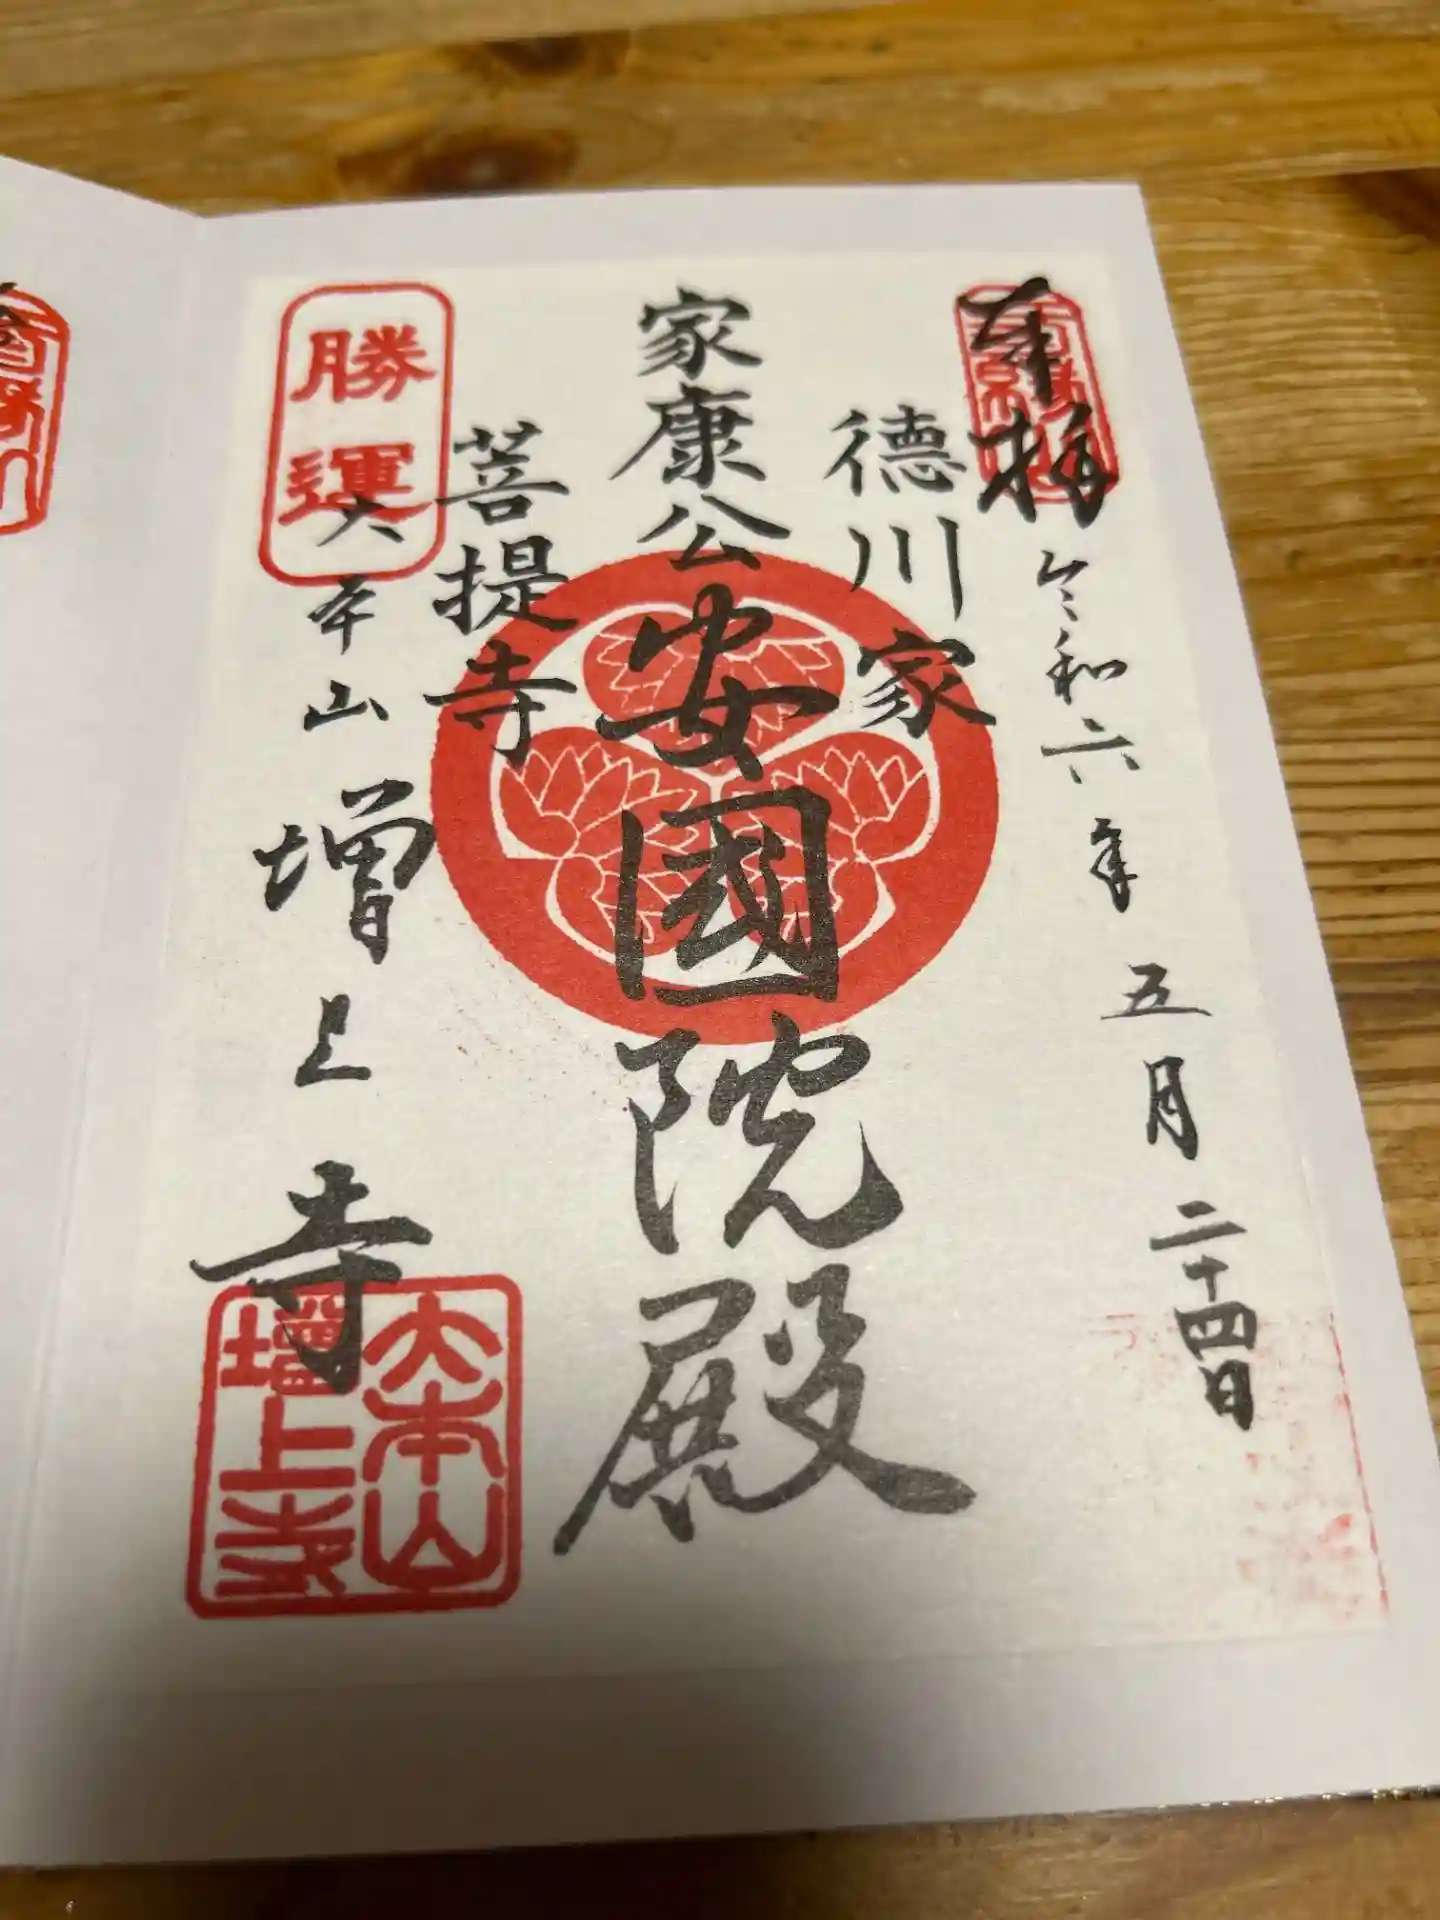 奉拝
令和六年五月二十四日
徳川家
家康公
安國院殿
菩提寺
勝運
大本山
増上寺
大本山
増上寺